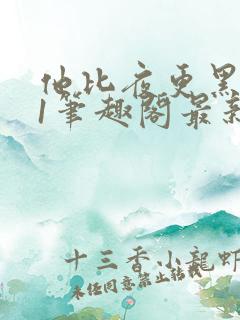 他比夜更黑
1笔趣阁最新
十三香小龍蝦
未经同意禁止转载